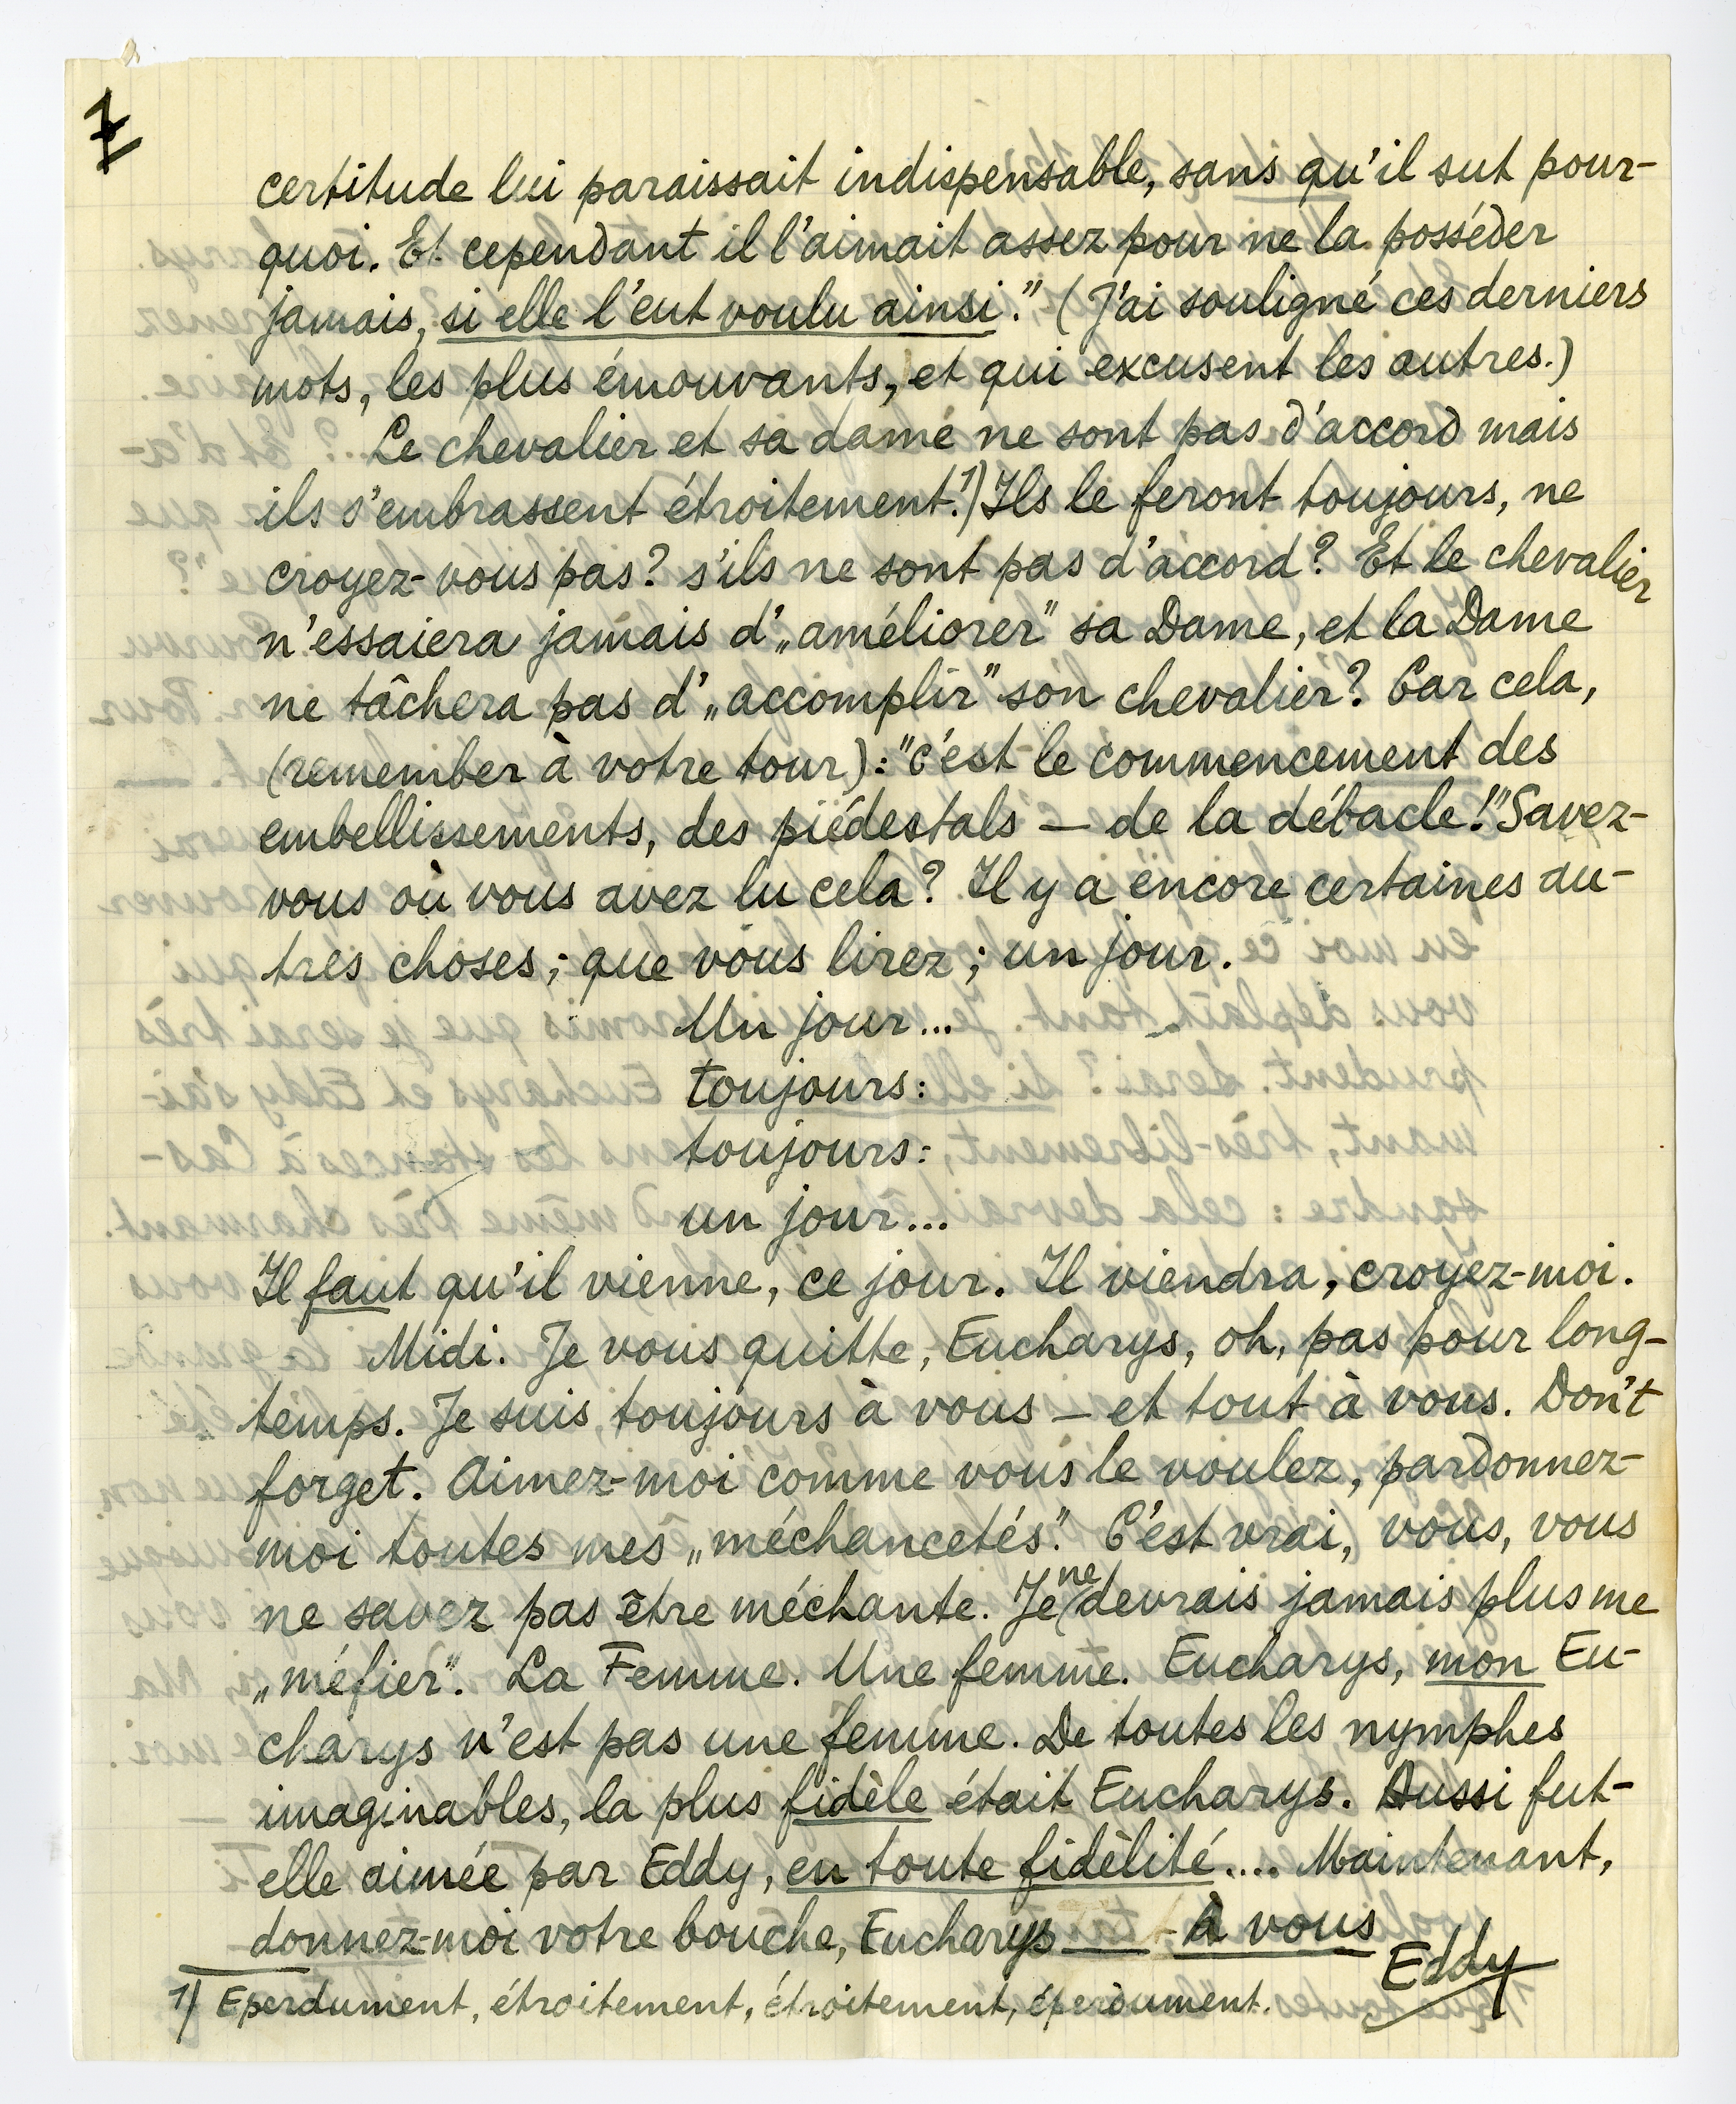 certitude lui paraissait indispensable, sans qu'il sut pour-
quoi. Et cependant il l'aimait assez pour ne la posséder
jamais, si elle l'eut voulu ainsi." (J'ai souligné ces derniers
mots, les plus émouvants, et qui excusent les autres.)
Le chevalier et sa dame ne sont pas d'accord mais
ils s'embrassent étroitement.1) Ils le feront toujours, ne
croyez-vous pas? s'ils ne sont pas d'accord? Et le chevalier
n'essaiera jamais d'„améliorer" sa Dame, et la Dame
ne tâchera pas d'„accomplir" son chevalier? Car cela,
(remember à votre tour): "c'est le commencement des
embellissements, des piédestals — de la débacle!" Savez-
vous où vous avez lu cela? Il y a encore certaines au-
tres choses; que vous lirez; un jour.
Un jour...
toujours:
toujours:
un jour...
Il faut qu'il vienne, ce jour. Il viendra, croyez-moi.
Midi. Je vous quitte, Eucharys, oh, pas pour long-
temps. Je suis toujours à vous — et tout à vous. Don't
forget. Aimez-moi comme vous le voulez, pardonnez-
moi toutes mes „méchancetés". C'est vrai, vous, vous
ne savez pas être méchante. Je ne devrais jamais plus me
„méfier". La Femme. Une femme. Eucharys, mon Eu-
charys n'est pas une femme. De toutes les nymphes
imaginables, la plus fidèle était Eucharys. Aussi fut-
elle aimée par Eddy, en toute fidèlité.... Maintenant,
donnez-moi votre bouche, Eucharys — À vous
Eddy
1) Eperdument, étroitement, étroitement, éperdument.